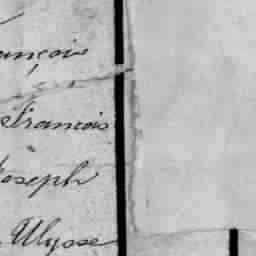 ançois
François
Joseph
Ulysse